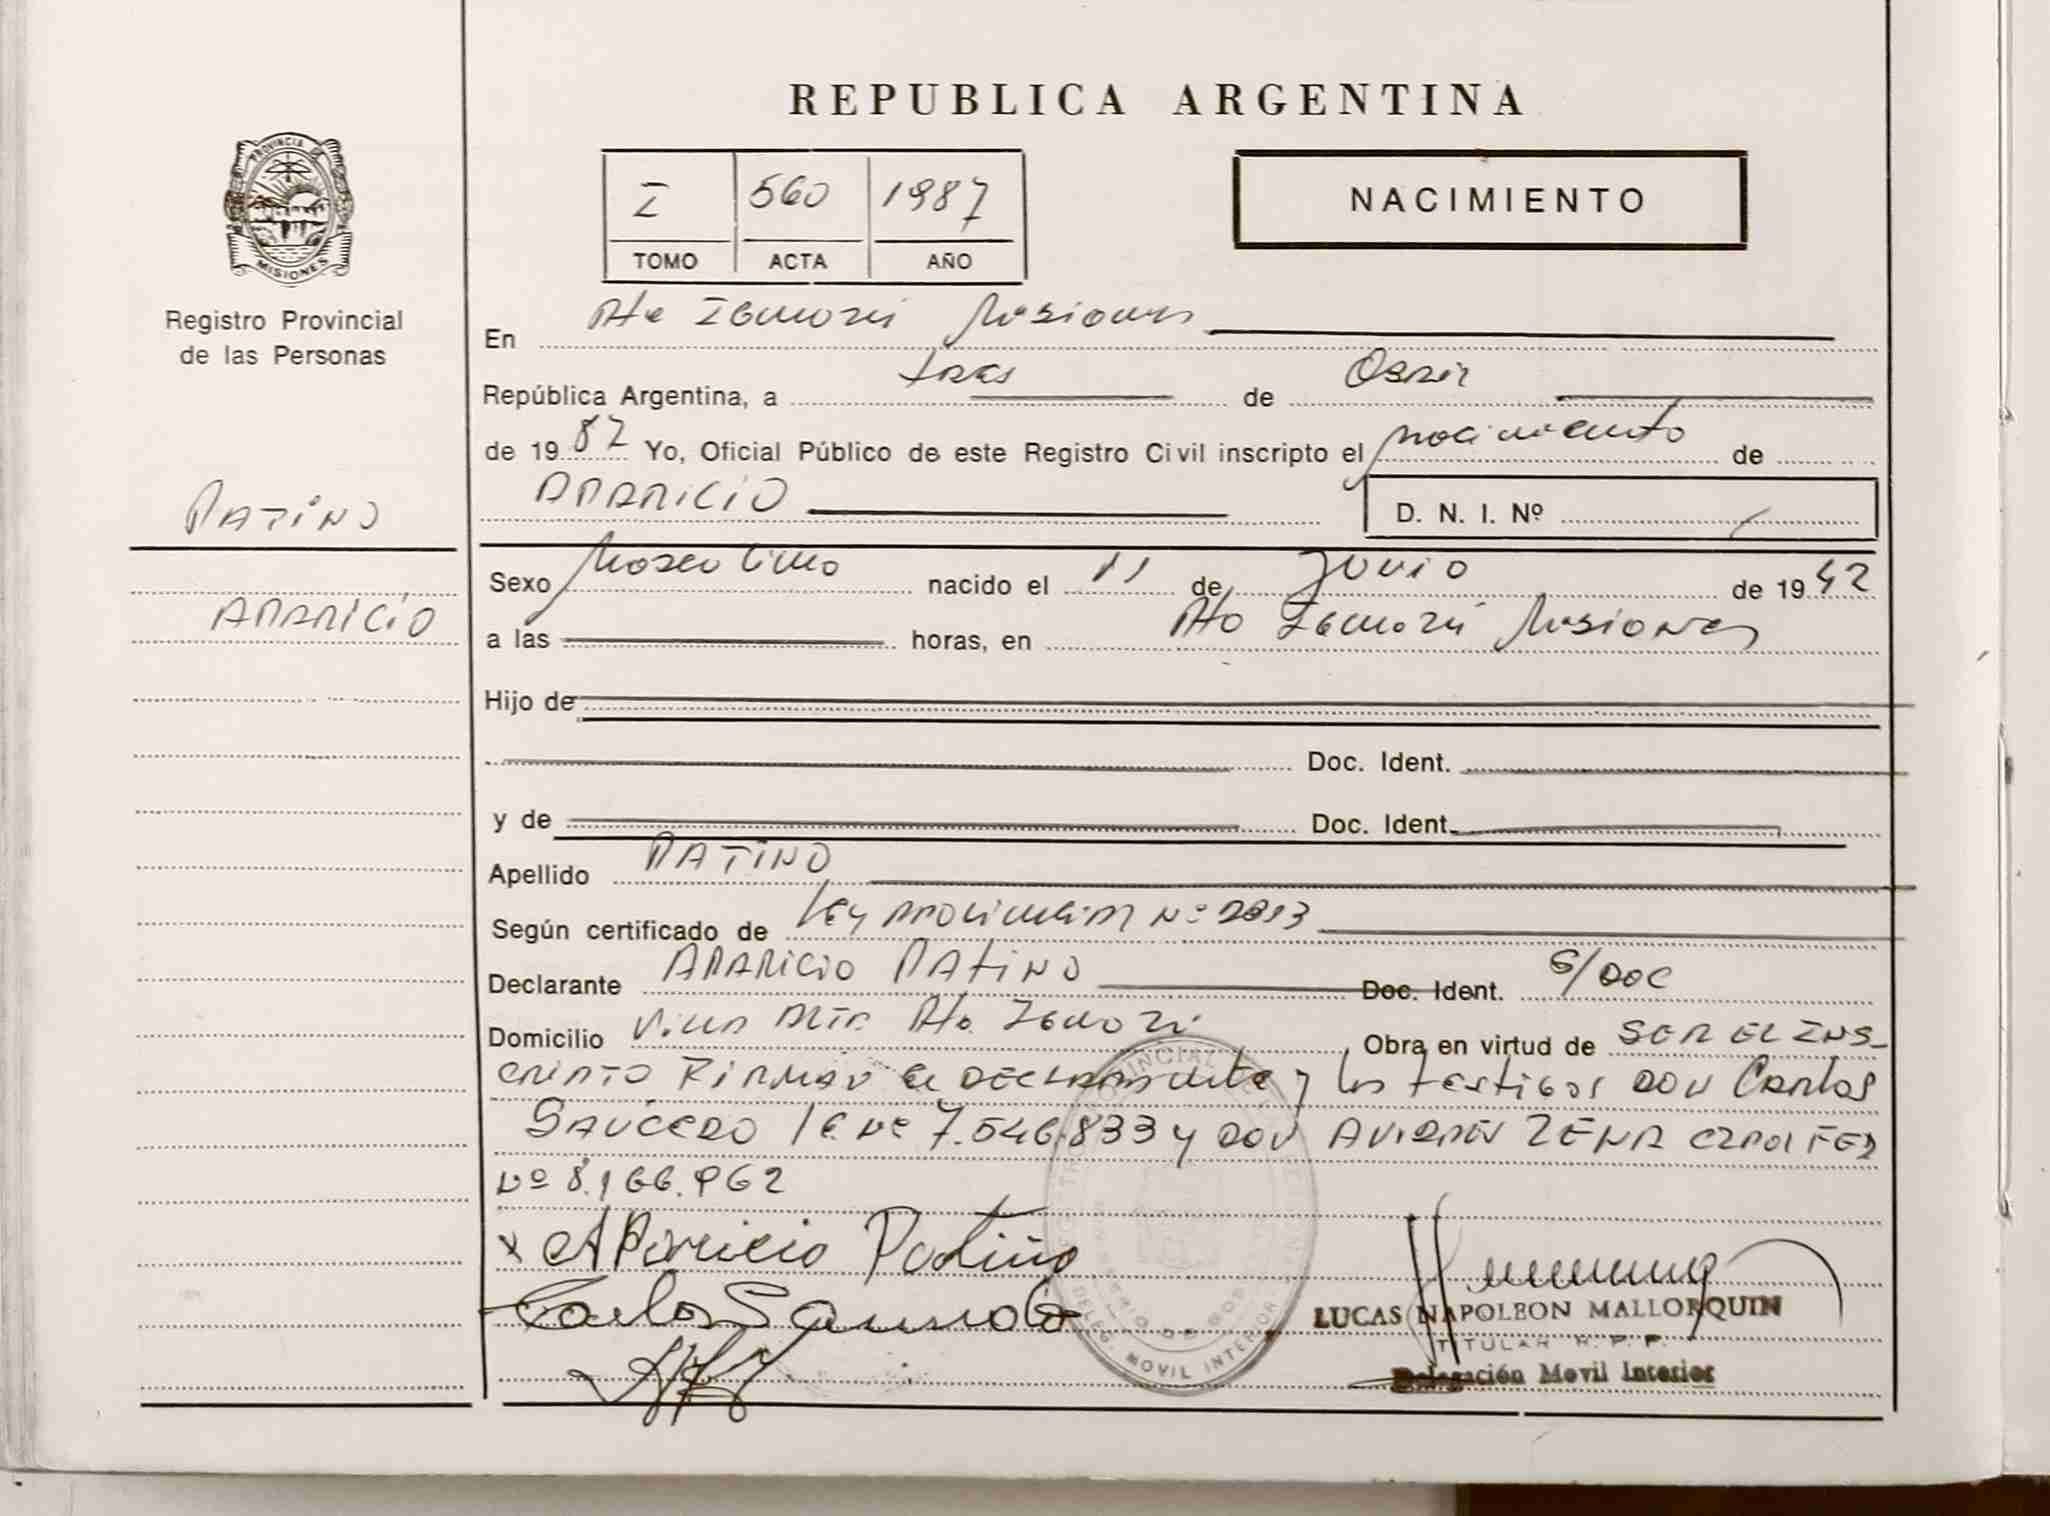 REPUBLICA ARGENTINA
PROVINCIA DE
MISIONES
Registro Provincial
de las Personas
I 560 1987
TOMO ACTA AÑO
NACIMIENTO
En Pto Misiones
República Argentina, a tres de Abril
de 1987 Yo, Oficial Público de este Registro Civil inscripto el nacimiento de
APARICIO
D. N. I. Nº
PATIÑO
APARICIO
Sexo Masculino nacido el 11 de Junio de 1942
a las horas, en Pto Misiones
Hijo de
Doc. Ident.
y de Doc. Ident.
Apellido PATIÑO
Según certificado de Ley Provincial Nº 2813
Declarante APARICIO PATIÑO Doc. Ident. S/DOC
Domicilio Villa Alta Pto. Obra en virtud de SER EL INS-
CRIPTO FIRMAN el DECLARANTE y los testigos DON Carlos
SAUCEDO LE Nº 7.546.833 y DON
Nº 8.166.962
x Aparicio Patiño
Carlos
LUCAS NAPOLEON MALLORQUIN
TITULAR R. P. P.
Delegación Movil Interior
DELEG. MOVIL INTERIOR